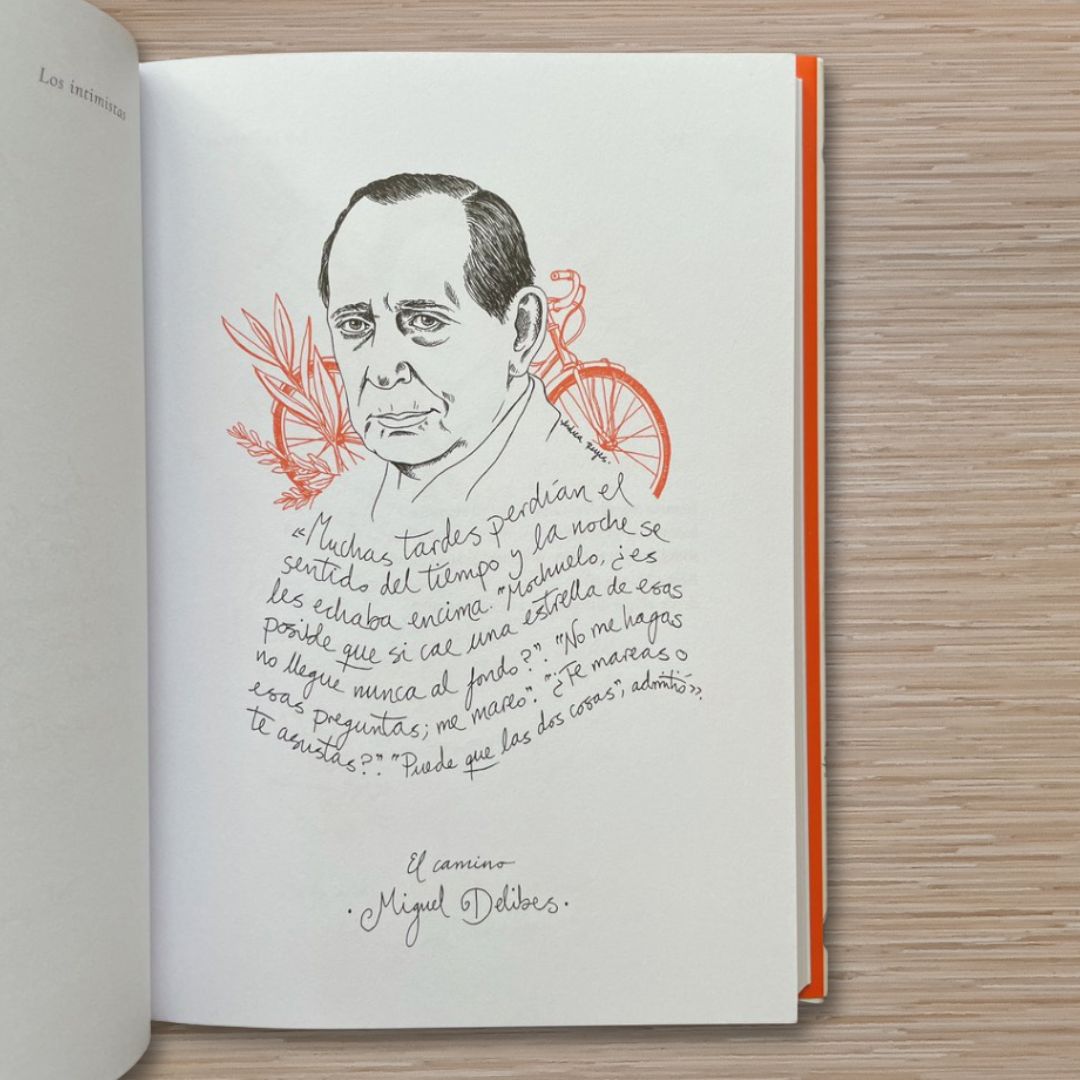 Los intimistas
Reyes.
«Muchas tardes perdían el
sentido del tiempo y la noche se
les echaba encima. "Mochuelo, ¿es
posible que si cae una estrella de esas
no llegue nunca al fondo?". "No me hagas
esas preguntas; me mareo". "¿Te mareas o
te asustas?". "Puede que las dos cosas", admitió».
El camino
·Miguel Delibes·